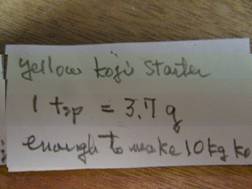 yellow koji starter
1 tsp = 3.7 g
enough to make 10 kg ko